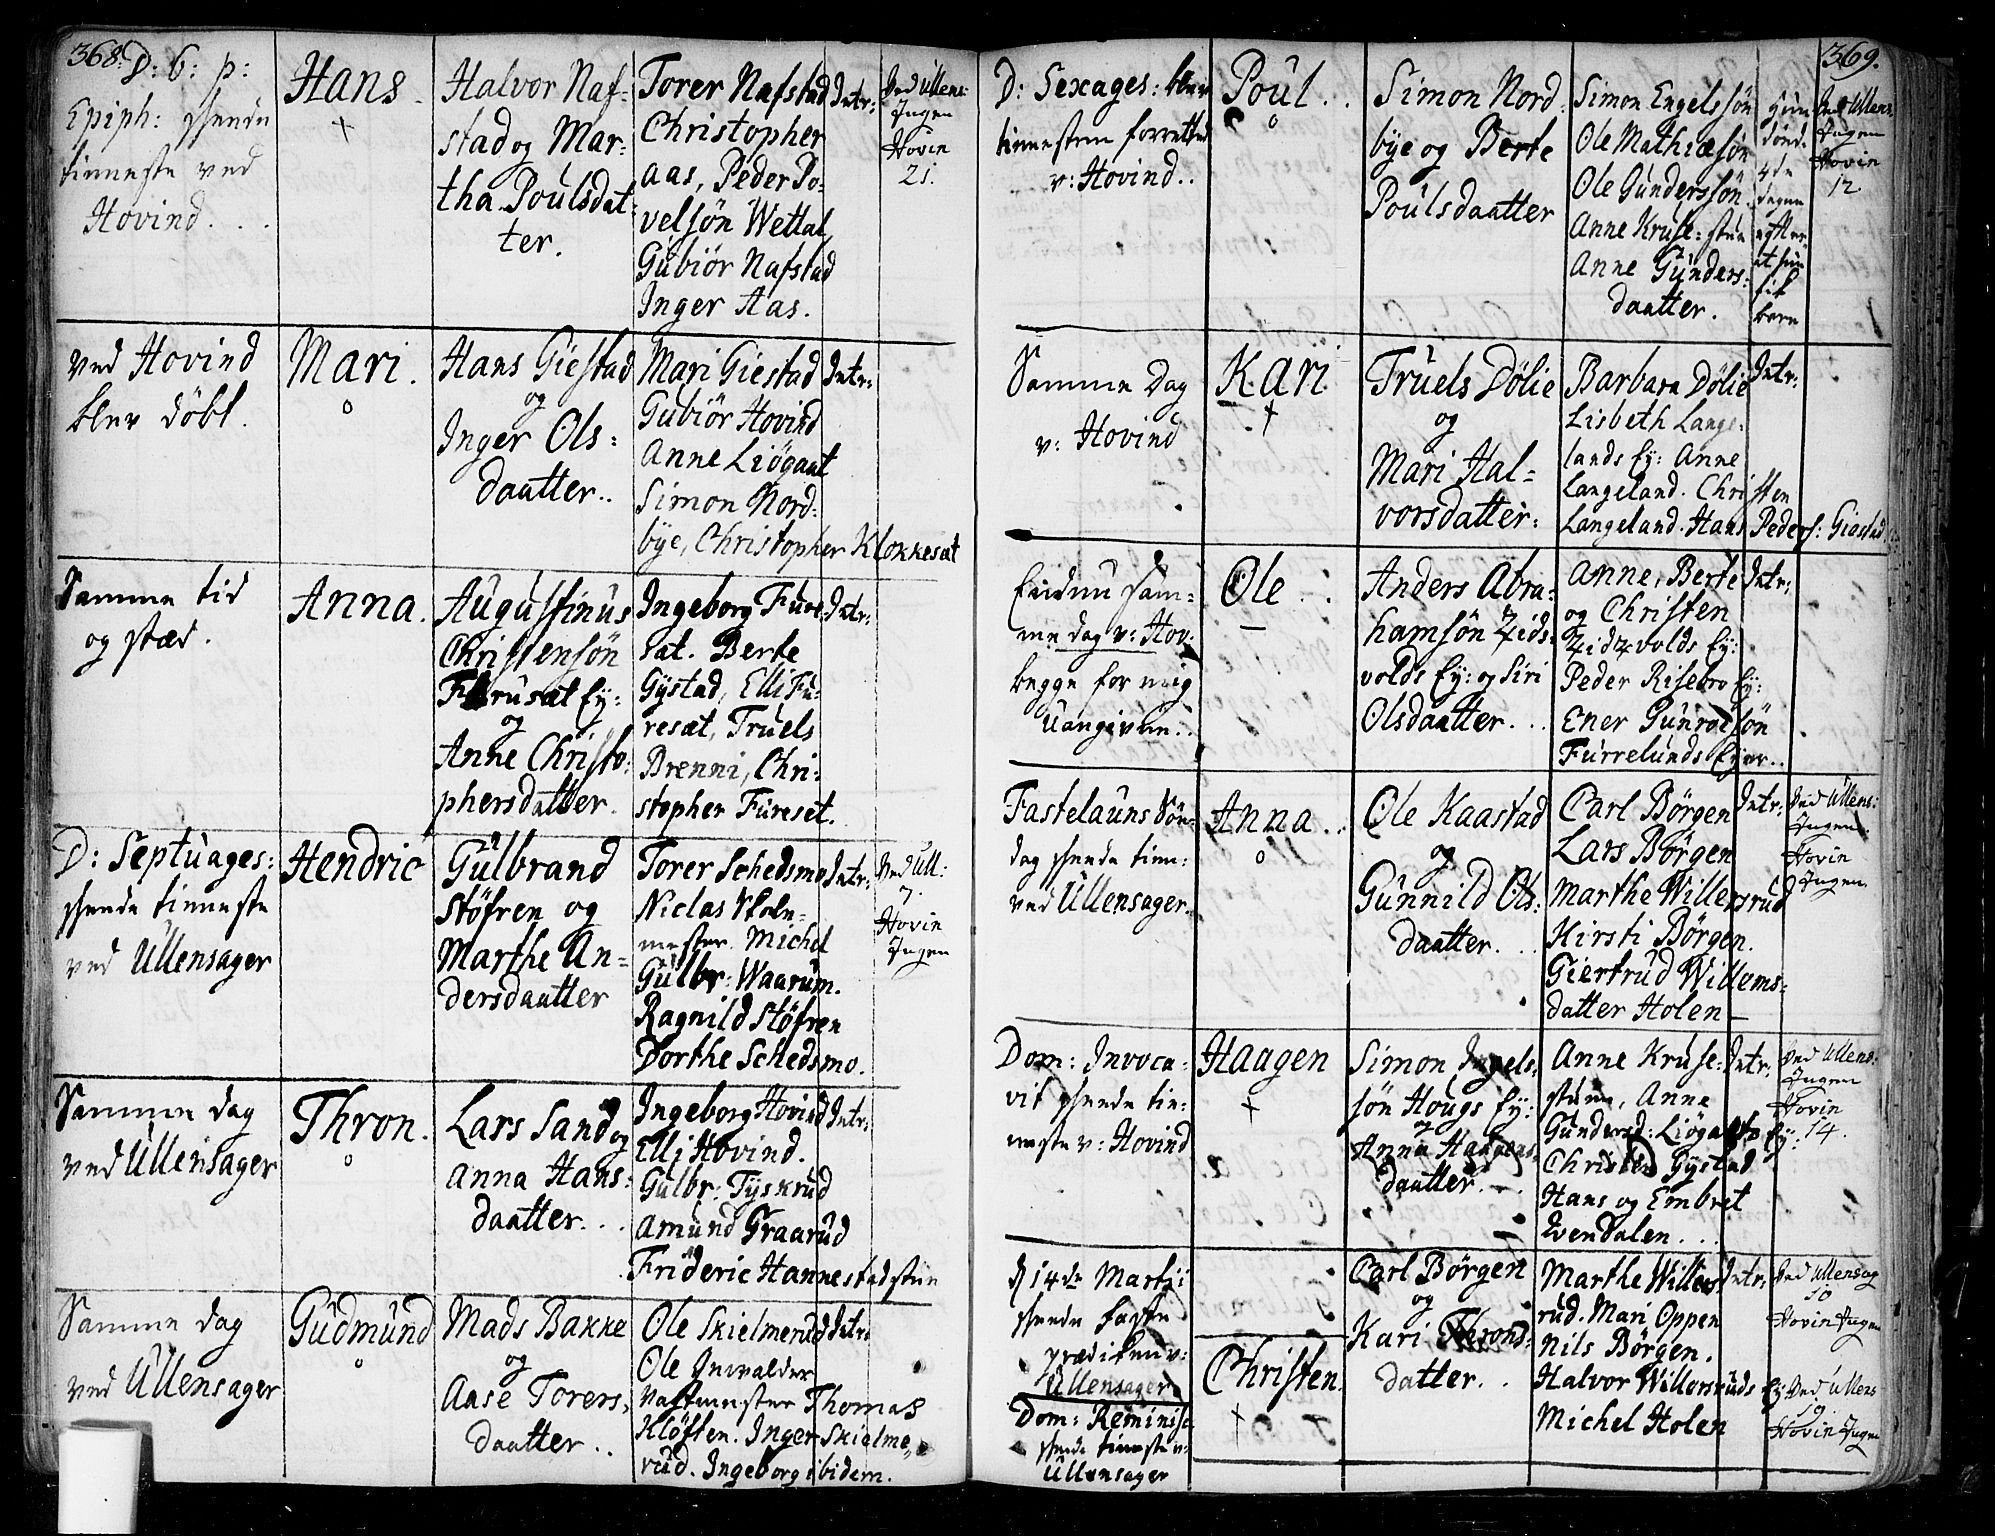 368.
D: 6: p:
Epiph: skeede
tienneste ved
Hovind. . .
Hans.
+
Halvor Naf-
stad og Mar-
tha Poulsdat-
ter.
Torer Nafstad
Christopher
Aas, Peder Po-
velsön Wettal
Gubiör Nafstad
Inger Aas.
Intr:
Ved Ullens:
Ingen
Hovin
21.
ved Hovind
blev döbt.
Mari.
o
Hans Giestad
og
Inger Ols-
daatter..
Mari Giestad
Gubiör Hovind
Anne Liögaat
Simon Nord-
bye, Christopher Klokkesæt
Intr:
Samme tid
og stæd.
Anna.
Augustinus
Christensön
Furusæt Ey:
og
Anne Christo-
phersdatter.
Ingeborg Fure-
sæt. Berte
Gystad, Elli Fu-
resæt, Truels
Brenni, Chri-
stopher Fureset.
Intr:
D: Septuages:
skeede tienneste
ved Ullensager
Hendric
Gulbrand
Stöfren og
Marthe An-
dersdaatter
Torer Schedsmo
Niclas Skole-
mester Michel
Gulbr: Waarum.
Ragnild Stöfren
Dorthe Schedsmo.
Intr:
Ved Ull:
7.
Hovin
Ingen
Samme dag
ved Ullensager
Thron.
o
Lars Sand og
Anna Hans-
daatter. . .
Ingeborg Hovind
Elli Hovind.
Gulbr: Tyskrud
Amund Graarud
Frideric Hannestadstun
Intr:
Samme dag
ved Ullensager
Gudmund
o
Mads Bakke
og
Aase Torers-
daatter. .
Ole Skielmerud
Ole
Thomas
Klöften. Inger Skielme-
rud. Ingeborg ibidem.
Intr:
369.
D: Sexages: blev
tienesten forrettet
v: Hovind..
Poul. .
o
Simon Nord-
bye og Berte
Poulsdaatter
Simon Engelssön
Ole Mathiæsön
Ole Gunderssön
Anne Kruse-stuen
Anne Gunders-
daatter.
Hun
döde
4de
dagen
efter
at hun
fik
barn
Ved Ullens:
Ingen
Hovin
12
Samme Dag
v: Hovind
Kari
+
Truels Dölie
og
Mari Hal-
vorsdatter:
Barbara Dölie
Lisbeth Lange-
lands Ey: Anne
Langeland. Christen
Langeland. Hans Peders: Giestad
Intr:
Endnu sam-
me dag v: Hov:
begge for mig
Uangivne..
Ole . .
Anders Abra-
hamsön Zids-
volds Ey: og Siri
Olsdaatter. . .
Anne, Berte
og Christen
Zidzvolds Ey:
Peder Risebro Ey:
Ener Gunrodsön
Furrelunds Eyer..
Intr:
Fastelauns Sön-
dag skeede tien:
ved Ullensager.
Anna . .
o
Ole Kaastad
og
Gunnild Ols-
daatter. . .
Carl Börgen
Lars Börgen
Marthe Willersrud
Kirsti Börgen.
Giertrud Willems-
datter Holen
Intr:
Ved Ullens:
Ingen.
Hovin
Ingen.
Dom: Invoca-
vit skeede tie-
neste v: Hovind
Haagen
+
Simon Ingels-
sön Hougs Ey:
og
Anna Haagens-
daatter. -
Anne Kruse-
stuen, Anne
Gundersd: Liögaats Ey:
Christen Gystad
Hans og Embret
Evendalen. . .
Intr:
Ved Ullens:
Ingen
Hovin
14.
d 14de Martii
skeede faste
prædiken v:
Ullensager
Dom: Reminisc
skeede tieneste v:
Ullensager
Christen
+
Carl Börgen
og
Kari Thrond-
datter. .
Marthe Willers-
rud. Mari Oppen
Nils Börgen.
Halvor Willersruds Ey:
Michel Holen
Intr:
Ved Ullensag
10
Hovin Ingen
Ved Ullens
19.
Hovin Ingen